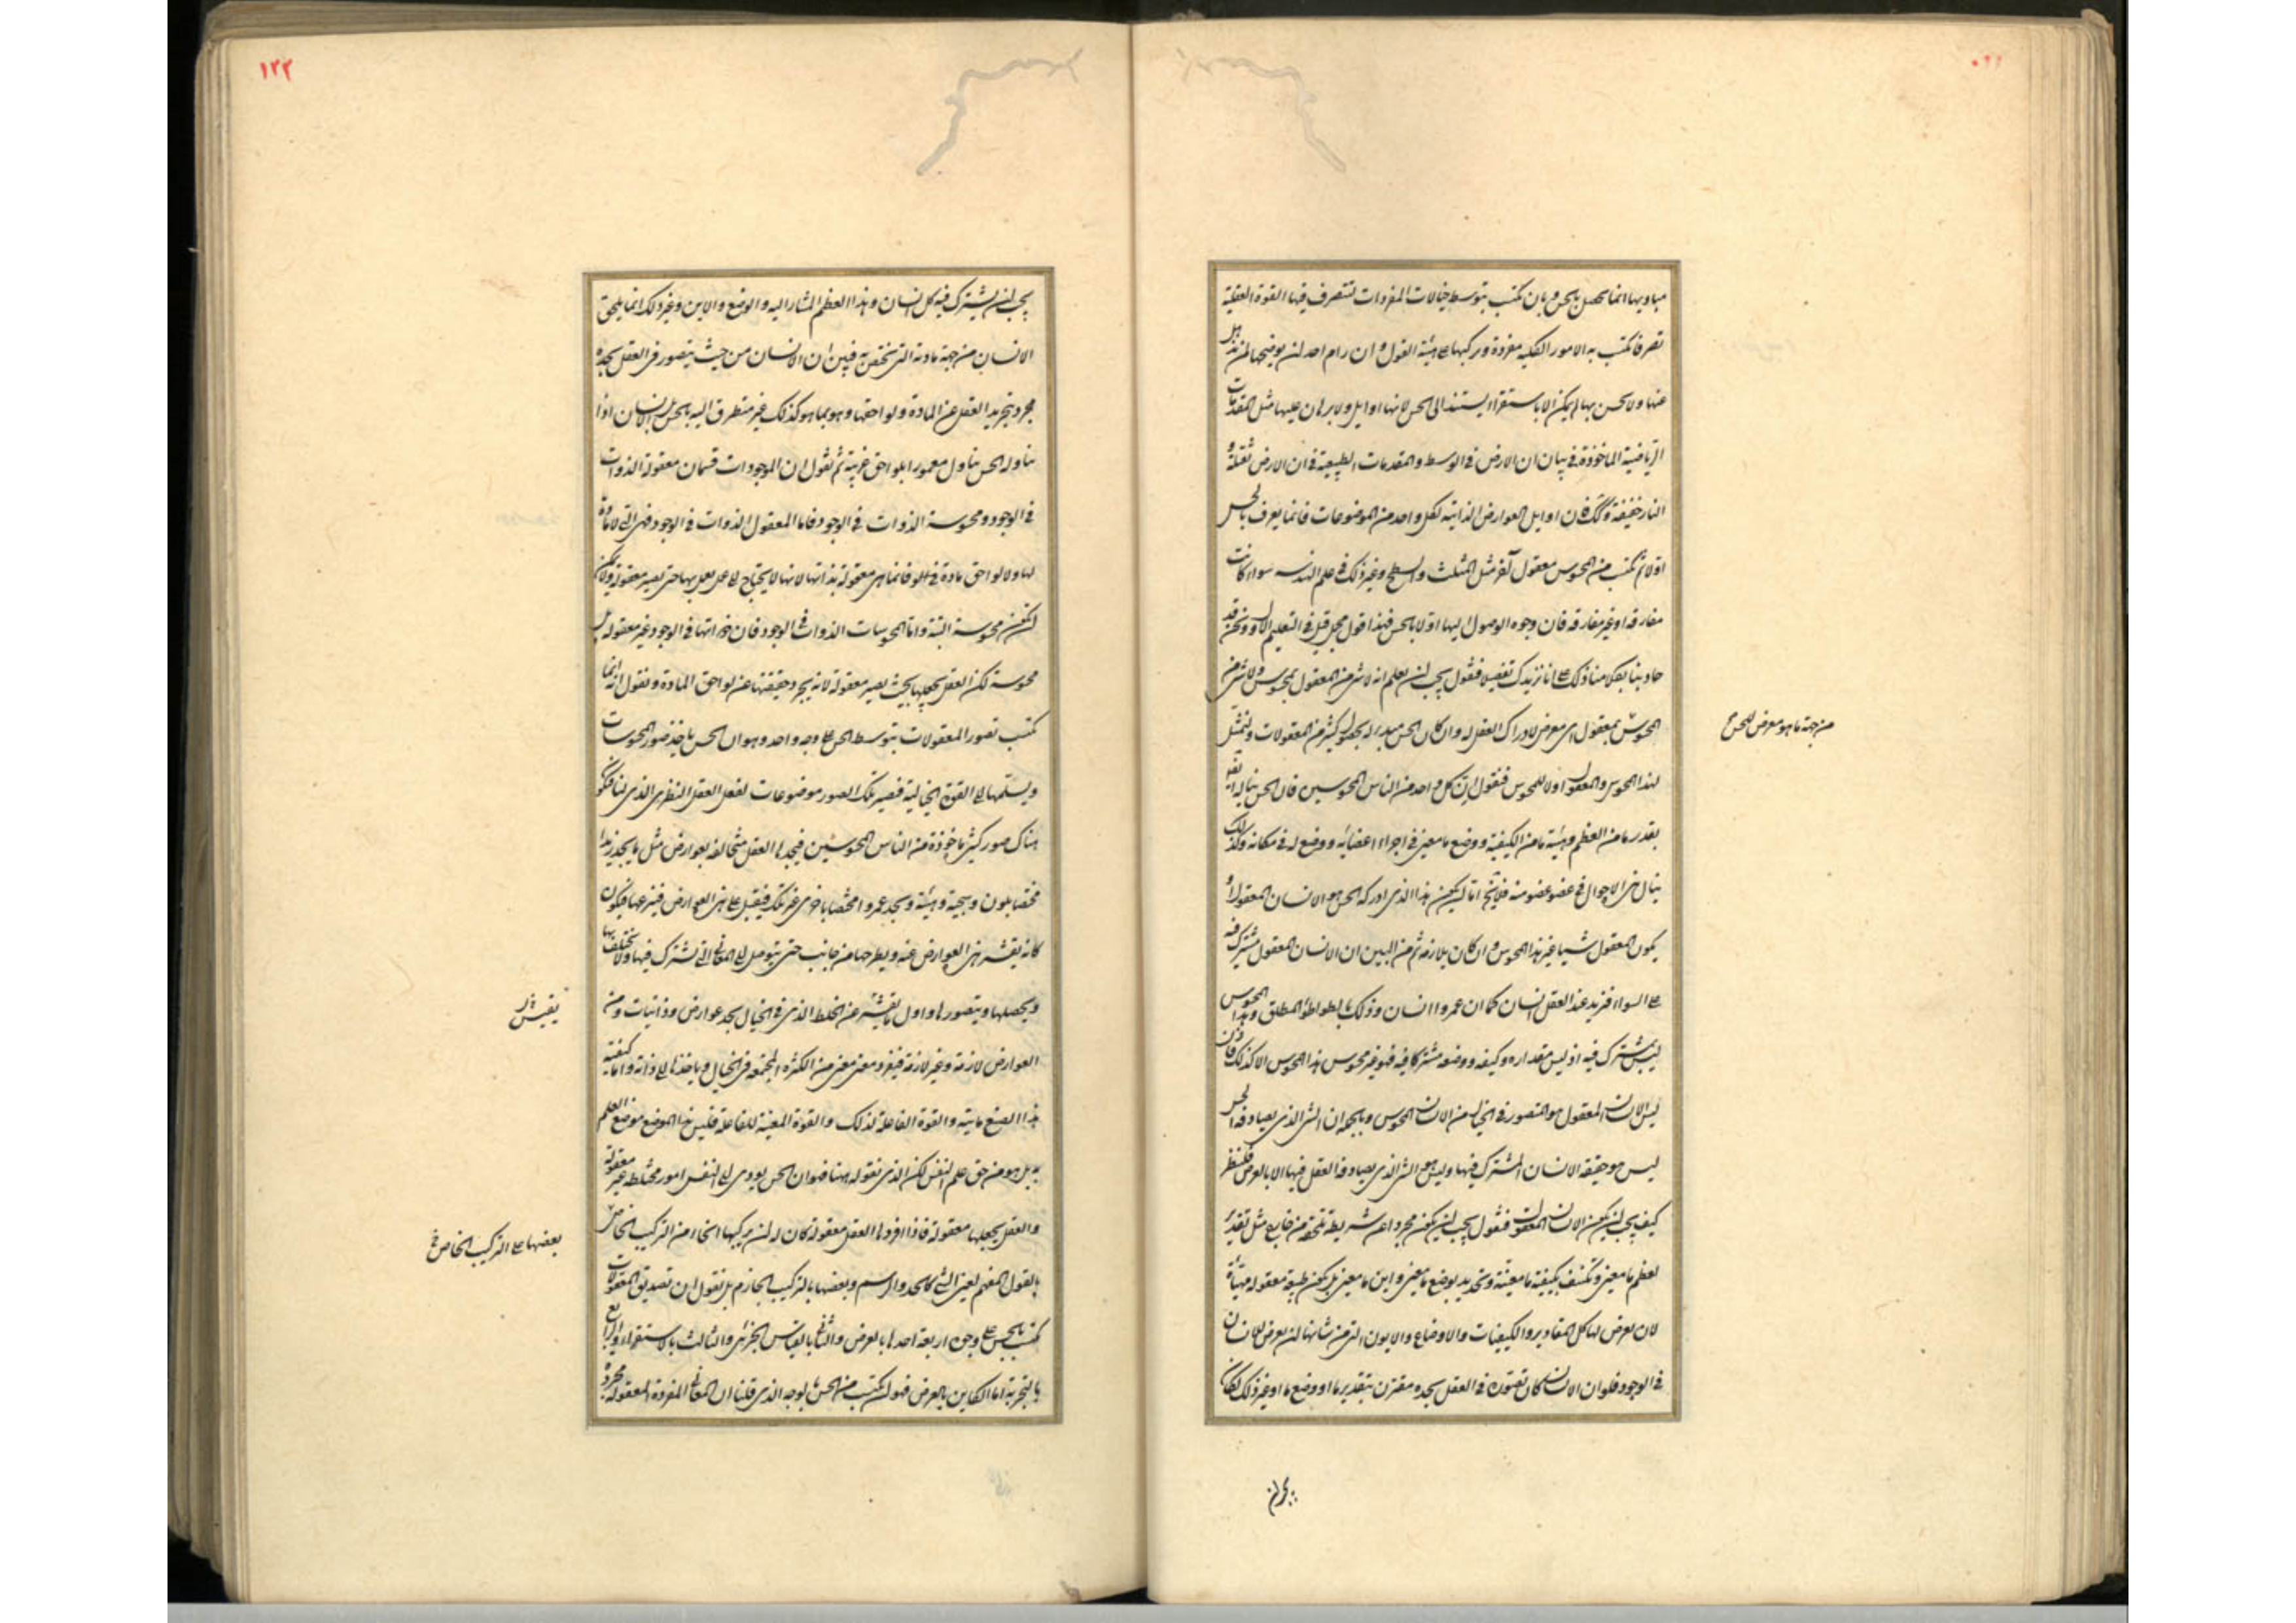 مباديها انما يحصل بالحس وبان يكتسب بتوسط خيالات المفردات لتتصرف فيها القوة العقلية
تصرفا يكتسب به الامور الكلية مفردة ويركبها على هيئة القول وان رام احد ان يوضحها لمن يذهل
عنها ولا يحسن بها لم يمكن الا باستقراء يستند الى الحس لانها اوايل ولا برهان عليها مثل المقدمات
الرياضية الماخوذة في بيان ان الارض في الوسط والمقدمات الطبيعية في ان الارض ثقيلة و
النار خفيفة وكك فان اوايل العوارض الذاتية لكل واحد من الموضوعات فانما يعرف بالحس
اولا ثم يكتسب من المحسوس معقول آخر مثل المثلث والسطح وغير ذلك في علم الهندسه سواء كانت
مفارقه او غير مفارقه فان وجوه الوصول اليها اولا بالحس فهذا قول مجمل قيل في التعليم الاول ونحن قد
حاذينا بكلامنا ذلك على انا نزيدك تفصيلا فنقول يجب ان يعلم انه لا شئ من المعقول بمحسوس ولا شئ من
المحسوس بمعقول اى معرض لادراك العقل له وان كان الحس مبدءا له بحصول كثير من المعقولات ولنمثل
من جهة ما هو معرض للحس
لهذا المحسوس والمعقول اولا للمحسوس فنقول ان كل واحد من الناس المحسوسين فان الحس يناله
بقدر ما من العظم وهيئة ما من الكيفية ووضع ما معين في اجزاء اعضائه ووضع له في مكانه وكذلك
ينال هذه الاحوال في عضو عضو منه فلا يخ اما ان يكون هذا الذى ادركه الحس هو الانسان المعقول او
يكون المعقول شيئا غير هذا المحسوس وان كان يلازمه ثم من البين ان الانسان المعقول مشترك فيه
على السواء فزيد عند العقل انسان كما ان عمروا انسان وذلك بالتواطؤ المطلق وهذا المحسوس
ليس بمشترك فيه اذ ليس مقداره وكيفه ووضعه مشتركا فيه فهو غير محسوس هذا المحسوس الا كذلك فاذن
ليس الانسان المعقول هو المتصور في الخيال من الانسان المحسوس وبالجمله ان الشئ الذى يصادفه الحس
ليس هو حقيقة الانسان المشترك فيها وليس هو الشئ الذى يصادفه العقل فيها الا بالعرض فلننظر
كيف يجب ان يكون الانسان المعقول فنقول يجب ان يكون مجردا عن شريطة تلحقه من خارج مثل تقدير
لعظم ما معين وتكيف بكيفية ما معينة وتحديد بوضع ما معين واين ما معين بل يكون طبيعة معقولة مهيأة
لان يعرض لها كل المقادير والكيفيات والاوضاع والايون التى من شانها ان يعرض للانسان
في الوجود فلو ان الانسان كان تصوره في العقل بحده مقترن بتقدير ما او وضع ما او غير ذلك لكان
يجب ان
١٢٢
يجب ان يشترك فيه كل انسان وهذا العظم المشار اليه والوضع والاين وغير ذلك انما يلحق
الانسان من جهة مادته التى تختص به فبين ان الانسان من حيث يتصور في العقل بحده
مجرد بتجريد العقل عن المادة ولواحقها وهو بما هو كذلك غير متطرق اليه بالحس بل الانسان اذا
تناوله الحس تناول مغمورا بلواحق غريبة ثم نقول ان الموجودات قسمان معقولة الذوات
في الوجود ومحسوسة الذوات في الوجود فاما المعقول الذوات في الوجود فهى التى لا مادة
لها ولا لواحق مادة فانما هى معقولة بذاتها لانها لا يحتاج الى عمل يعمل بها حتى يصير معقولة ولا يمكن
ان يكون محسوسة البتة واما المحسوسات الذوات في الوجود فان ذواتها في الوجود غير معقوله بل
محسوسة لكن العقل يجعلها بحيث يصير معقولة لانه يجرد حقيقتها عن لواحق المادة ونقول انه انما
يكتسب تصور المعقولات بتوسط الحس على وجه واحد وهو ان الحس ياخذ صور المحسوسات
ويسلمها الى القوة الخيالية فتصير تلك الصور موضوعات لفعل العقل النظرى الذى لنا فيكون
هناك صور كثيرة ماخوذة من الناس المحسوسين فيجدها العقل متخالفه بعوارض مثل ما يجد زيدا
مختصا بلون وسحنة وهيئة ويجد عمروا مختصا باخرى غير تلك فيقبل على هذه العوارض فينزعها فيكون
كانه يقشر هذه العوارض عنه ويطرحها من جانب حتى يتوصل الى المعانى التى تشترك فيها ولا تختلف بها
ويحصلها ويتصورها واول ما يفتش عن الخلط الذى في الخيال يجد عوارض وذاتيات ومن
العوارض لازمة وغير لازمة فيفرد معنى معنى من الكثرة المجتمعة في الخيال وياخذها الى ذاته واما كيفية
هذا الصنع ماهيته والقوة الفاعلة لذلك والقوة المعينة للفاعلة فليس هذا الموضع موضع العلم
به بل هو من حق علم النفس لكن الذى نقوله ههنا فهو ان الحس يودى الى النفس امور مختلطه غير معقولة
والعقل يجعلها معقولة فاذا افردها العقل معقولة كان له ان يركبها انحاء من التركيب الخاص
بعضها على التركيب الخاص في
بالقول المفهم لمعنى الشئ كالحد والرسم وبعضها بالتركيب الجازم بل نقول ان تصديق المعقولات
يكتسب بالحس على وجوه اربعة احدها بالعرض والثانى بالقياس الجزئى والثالث بالاستقراء والرابع
بالتجربة اما الكاين بالعرض فهو ان يكتسب من الحس بالوجه الذى قلنا ان المعانى المفردة المعقولة مجردة